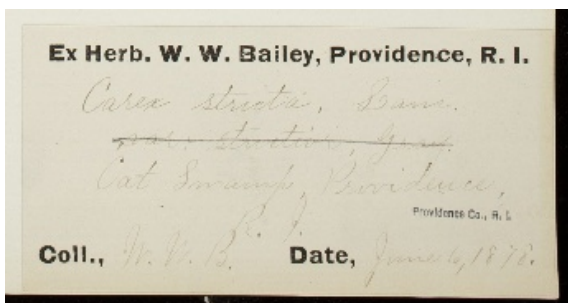 Ex Herb. W. W. Bailey, Providence, R. I.
Carex stricta, Lam.
var. strictior, Gray.
Cat Swamp, Providence,
R. I.
Providence Co., R. I.
Coll., W. W. B. Date, June 6, 1878.